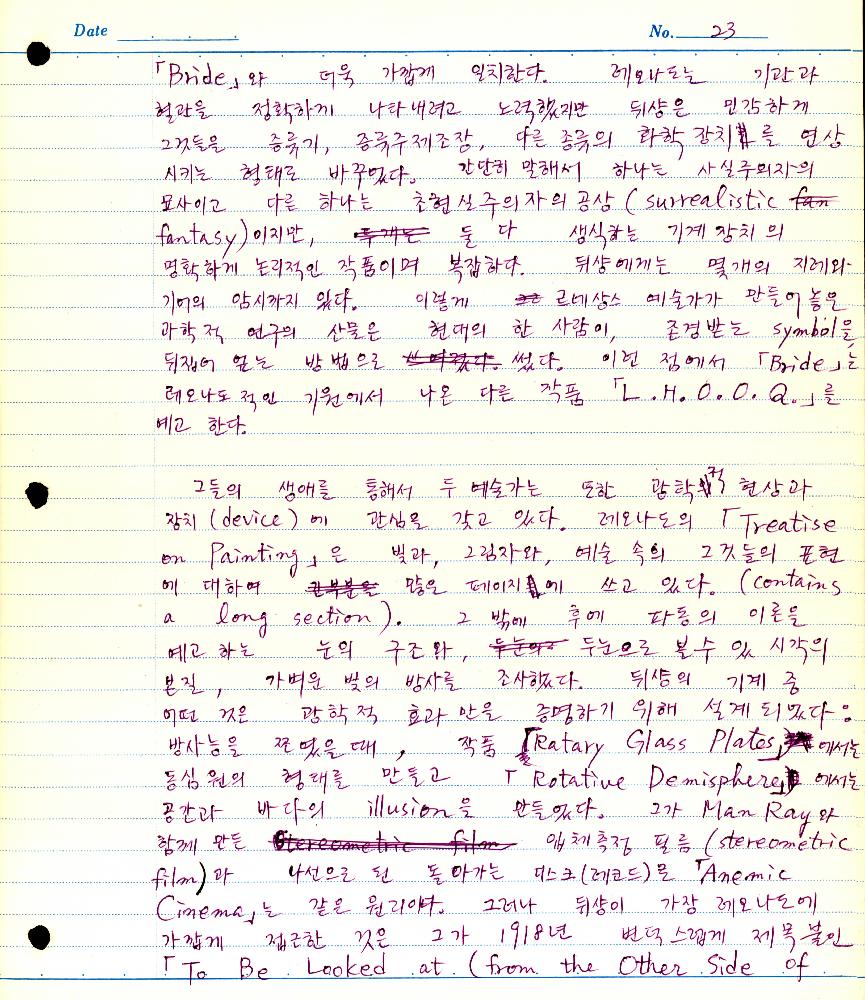 Date
No. 23
「Bride」와 더욱 가깝게 일치한다. 레오나도는 기관과
혈관을 정확하게 나타내려고 노력했지만 뒤샹은 민감하게
그것들을 증류기, 증류주제조장, 다른 종류의 화학 장치를 연상
시키는 형태로 바꾸었다. 간단히 말해서 하나는 사실주의자의
묘사이고 다른 하나는 초현실주의자의 공상 (surrealistic fan
fantasy)이지만, 두개는 둘 다 생식하는 기계 장치의
명확하게 논리적인 작품이며 복잡하다. 뒤샹에게는 몇개의 지레와
기어의 암시까지 있다. 이렇게 르네상스 예술가가 만들어 놓은
과학적 연구의 산물은 현대의 한 사람이, 존경받는 symbol을
뒤집어 엎는 방법으로 쓰여졌다. 썼다. 이런 점에서 「Bride」는
레오나도적인 기원에서 나온 다른 작품 「L.H.O.O.Q.」를
예고 한다.
그들의 생애를 통해서 두 예술가는 또한 광학적 현상과
장치 (device)에 관심을 갖고 있다. 레오나도의 「Treatise
on Painting」은 빛과, 그림자와, 예술 속의 그것들의 표현
에 대하여 긴부분을 많은 페이지에 쓰고 있다. (contains
a long section). 그 밖에 후에 파동의 이론을
예고 하는 눈의 구조와, 두눈의 두눈으로 볼 수 있 시각의
본질, 가벼운 빛의 방사를 조사했다. 뒤샹의 기계 중
어떤 것은 광학적 효과 만을 증명하기 위해 설계 되었다:
방사능을 쯘였을 때, 작품 「Ratary Glass Plates」에서는
동심원의 형태를 만들고 「Rotative Demisphere」에서는
공간과 바다의 illusion을 만들었다. 그가 Man Ray와
함께 만든 Stereometric film 입체측정 필름 (stereometric
film)과 나선으로 된 돌아가는 디스크(레코드)로 「Anemic
Cinema」는 같은 원리이다. 그러나 뒤샹이 가장 레오나도에
가깝게 접근한 것은 그가 1918년 변덕스럽게 제목 붙인
「To Be Looked at (from the Other Side of